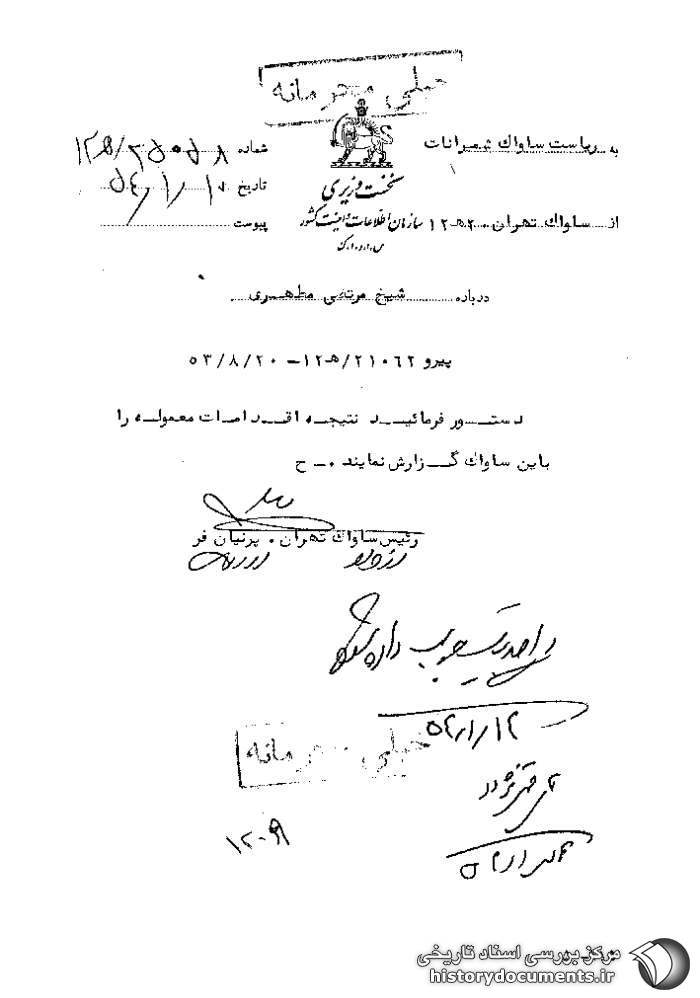 خیلی محرمانه
به ریاست ساواك شمیرانات
شماره ۲۵۰۵۸/۱۲ﻫ
نخست وزیری
تاریخ ۵۴/۱/۱۰
از ساواك تهران ۲۰ﻫ۱۲
سازمان اطلاعات و امنیت کشور
پیوست
س.ا.و.ا.ك
درباره شیخ مرتضی مطهری
پیرو ۲۱۰۶۲/ﻫ۱۲ – ۵۳/۸/۲۰
دستور فرمائید نتیجه اقدامات معموله را
باین ساواك گزارش نمایند ۰ـ ح
رئیس ساواك تهران ۰ پرنیان فر
داده شود
۵۴/۱/۱۲
خیلی محرمانه
۱۲۰۹۹
مرکز بررسی اسناد تاریخی
historydocuments.ir